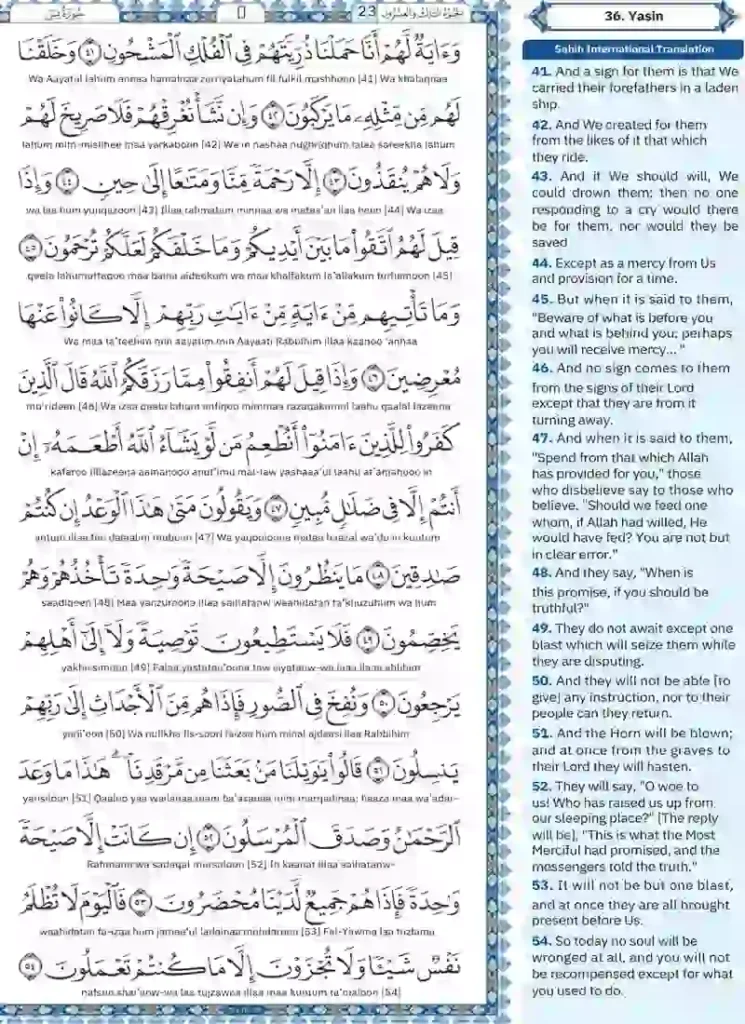 سورة يس
23 الجزء الثالث والعشرون
وَءَايَةٌ لَّهُمْ أَنَّا حَمَلْنَا ذُرِّيَّتَهُمْ فِى ٱلْفُلْكِ ٱلْمَشْحُونِ ٤١ وَخَلَقْنَا
Wa Aayatul lahum annaa hamalnaa zurriyatahum fil fulkil mashhoon [41] Wa khalaqnaa
لَهُم مِّن مِّثْلِهِۦ مَا يَرْكَبُونَ ٤٢ وَإِن نَّشَأْ نُغْرِقْهُمْ فَلَا صَرِيخَ لَهُمْ
lahum mim-mislihee maa yarkaboon [42] We in nashaa nughriqhum falaa sareekha lahum
وَلَا هُمْ يُنقَذُونَ ٤٣ إِلَّا رَحْمَةً مِّنَّا وَمَتَٰعًا إِلَىٰ حِينٍ ٤٤ وَإِذَا
wa laa hum yunqazoon [43] Illaa rahmatam minnaa wa mataa'an ilaa heen [44] Wa izaa
قِيلَ لَهُمُ ٱتَّقُوا۟ مَا بَيْنَ أَيْدِيكُمْ وَمَا خَلْفَكُمْ لَعَلَّكُمْ تُرْحَمُونَ ٤٥
qeela lahumuttaqoo maa baina aideekum wa maa khalfakum la'allakum turhamoon [45]
وَمَا تَأْتِيهِم مِّنْ ءَايَةٍ مِّنْ ءَايَٰتِ رَبِّهِمْ إِلَّا كَانُوا۟ عَنْهَا
Wa maa ta'teehim min aayatim min Aayaati Rabbihim illaa kaanoo 'anhaa
مُعْرِضِينَ ٤٦ وَإِذَا قِيلَ لَهُمْ أَنفِقُوا۟ مِمَّا رَزَقَكُمُ ٱللَّهُ قَالَ ٱلَّذِينَ
mu'rideen [46] Wa izaa qeela lahum anfiqoo mimmaa razaqakumul laahu qaalal lazeena
كَفَرُوا۟ لِلَّذِينَ ءَامَنُوٓا۟ أَنُطْعِمُ مَن لَّوْ يَشَآءُ ٱللَّهُ أَطْعَمَهُۥٓ إِنْ
kafaroo lillazeena aamanooo anut'imu mal-law yashaaa'ul laahu at'amahooo in
أَنتُمْ إِلَّا فِى ضَلَٰلٍ مُّبِينٍ ٤٧ وَيَقُولُونَ مَتَىٰ هَٰذَا ٱلْوَعْدُ إِن كُنتُمْ
antum illaa fee dalaalim mubeen [47] Wa yaqooloona mataa haazal wa'du in kuntum
صَٰدِقِينَ ٤٨ مَا يَنظُرُونَ إِلَّا صَيْحَةً وَٰحِدَةً تَأْخُذُهُمْ وَهُمْ
saadiqeen [48] Maa yanzuroona illaa saihatanw waahidatan ta'khuzuhum wa hum
يَخِصِّمُونَ ٤٩ فَلَا يَسْتَطِيعُونَ تَوْصِيَةً وَلَآ إِلَىٰٓ أَهْلِهِمْ
yakhissimoon [49] Falaa yastatee'oona taw siyatanw-wa laaa ilaaa ahlihim
يَرْجِعُونَ ٥٠ وَنُفِخَ فِى ٱلصُّورِ فَإِذَا هُم مِّنَ ٱلْأَجْدَاثِ إِلَىٰ رَبِّهِمْ
yarji'oon [50] Wa nufikha fis-soori faizaa hum minal ajdaasi ilaa Rabbihim
يَنسِلُونَ ٥١ قَالُوا۟ يَٰوَيْلَنَا مَنۢ بَعَثَنَا مِن مَّرْقَدِنَا ۜ هَٰذَا مَا وَعَدَ
yansiloon [51] Qaaloo yaa wailanaa mam ba'asanaa mim marqadinaa; haaza maa wa'adar-
ٱلرَّحْمَٰنُ وَصَدَقَ ٱلْمُرْسَلُونَ ٥٢ إِن كَانَتْ إِلَّا صَيْحَةً
Rahmaanu wa sadaqal mursaloon [52] In kaanat illaa saihatanw-
وَٰحِدَةً فَإِذَا هُمْ جَمِيعٌ لَّدَيْنَا مُحْضَرُونَ ٥٣ فَٱلْيَوْمَ لَا تُظْلَمُ
waahidatan fa-izaa hum jamee'ul ladainaa muhdaroon [53] Fal-Yawma laa tuzlamu
نَفْسٌ شَيْـًٔا وَلَا تُجْزَوْنَ إِلَّا مَا كُنتُمْ تَعْمَلُونَ ٥٤
nafsun shai'anw-wa laa tujzawna illaa maa kuntum ta'maloon [54]
36. Yasin
Sahih International Translation
41. And a sign for them is that We
carried their forefathers in a laden
ship.
42. And We created for them
from the likes of it that which
they ride.
43. And if We should will, We
could drown them; then no one
responding to a cry would there
be for them, nor would they be
saved
44. Except as a mercy from Us
and provision for a time.
45. But when it is said to them,
"Beware of what is before you
and what is behind you; perhaps
you will receive mercy... "
46. And no sign comes to them
from the signs of their Lord
except that they are from it
turning away.
47. And when it is said to them,
"Spend from that which Allah
has provided for you," those
who disbelieve say to those who
believe, "Should we feed one
whom, if Allah had willed, He
would have fed? You are not but
in clear error."
48. And they say, "When is
this promise, if you should be
truthful?"
49. They do not await except one
blast which will seize them while
they are disputing.
50. And they will not be able [to
give] any instruction, nor to their
people can they return.
51. And the Horn will be blown;
and at once from the graves to
their Lord they will hasten.
52. They will say, "O woe to
us! Who has raised us up from
our sleeping place?" [The reply
will be], "This is what the Most
Merciful had promised, and the
messengers told the truth."
53. It will not be but one blast,
and at once they are all brought
present before Us.
54. So today no soul will be
wronged at all, and you will not
be recompensed except for what
you used to do.